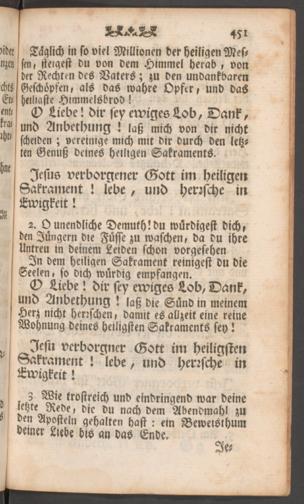 451
Täglich in so viel Millionen der heiligen Mes-
sen, steigest du von dem Himmel herab, von
der Rechten des Vaters; zu den undankbaren
Geschöpfen, als das wahre Opfer, und das
heiligste Himmelsbrod!
O Liebe! dir sey ewiges Lob, Dank,
und Anbethung! laß mich von dir nicht
scheiden; vereinige mich mit dir durch den letz-
ten Genuß deines heiligen Sakraments.
Jesus verborgener Gott im heiligen
Sakrament! lebe, und herrsche in
Ewigkeit!
2. O unendliche Demuth! du würdigest dich,
den Jüngern die Füsse zu waschen, da du ihre
Untren in deinem Leiden schon vorgesehen
In dem heiligen Sakrament reinigest du die
Seelen, so dich würdig empfangen.
O Liebe! dir sey ewiges Lob, Dank,
und Anbethung! laß die Sünd in meinem
Herz nicht herrschen, damit es allzeit eine reine
Wohnung deines heiligsten Sakraments sey!
Jesu verborgner Gott im heiligsten
Sakrament! lebe, und herrsche in
Ewigkeit!
3 Wie trostreich und eindringend war deine
letzte Rede, die du nach dem Abendmahl zu
den Aposteln gehalten hast: ein Beweisthum
deiner Liebe bis an das Ende.
Je-